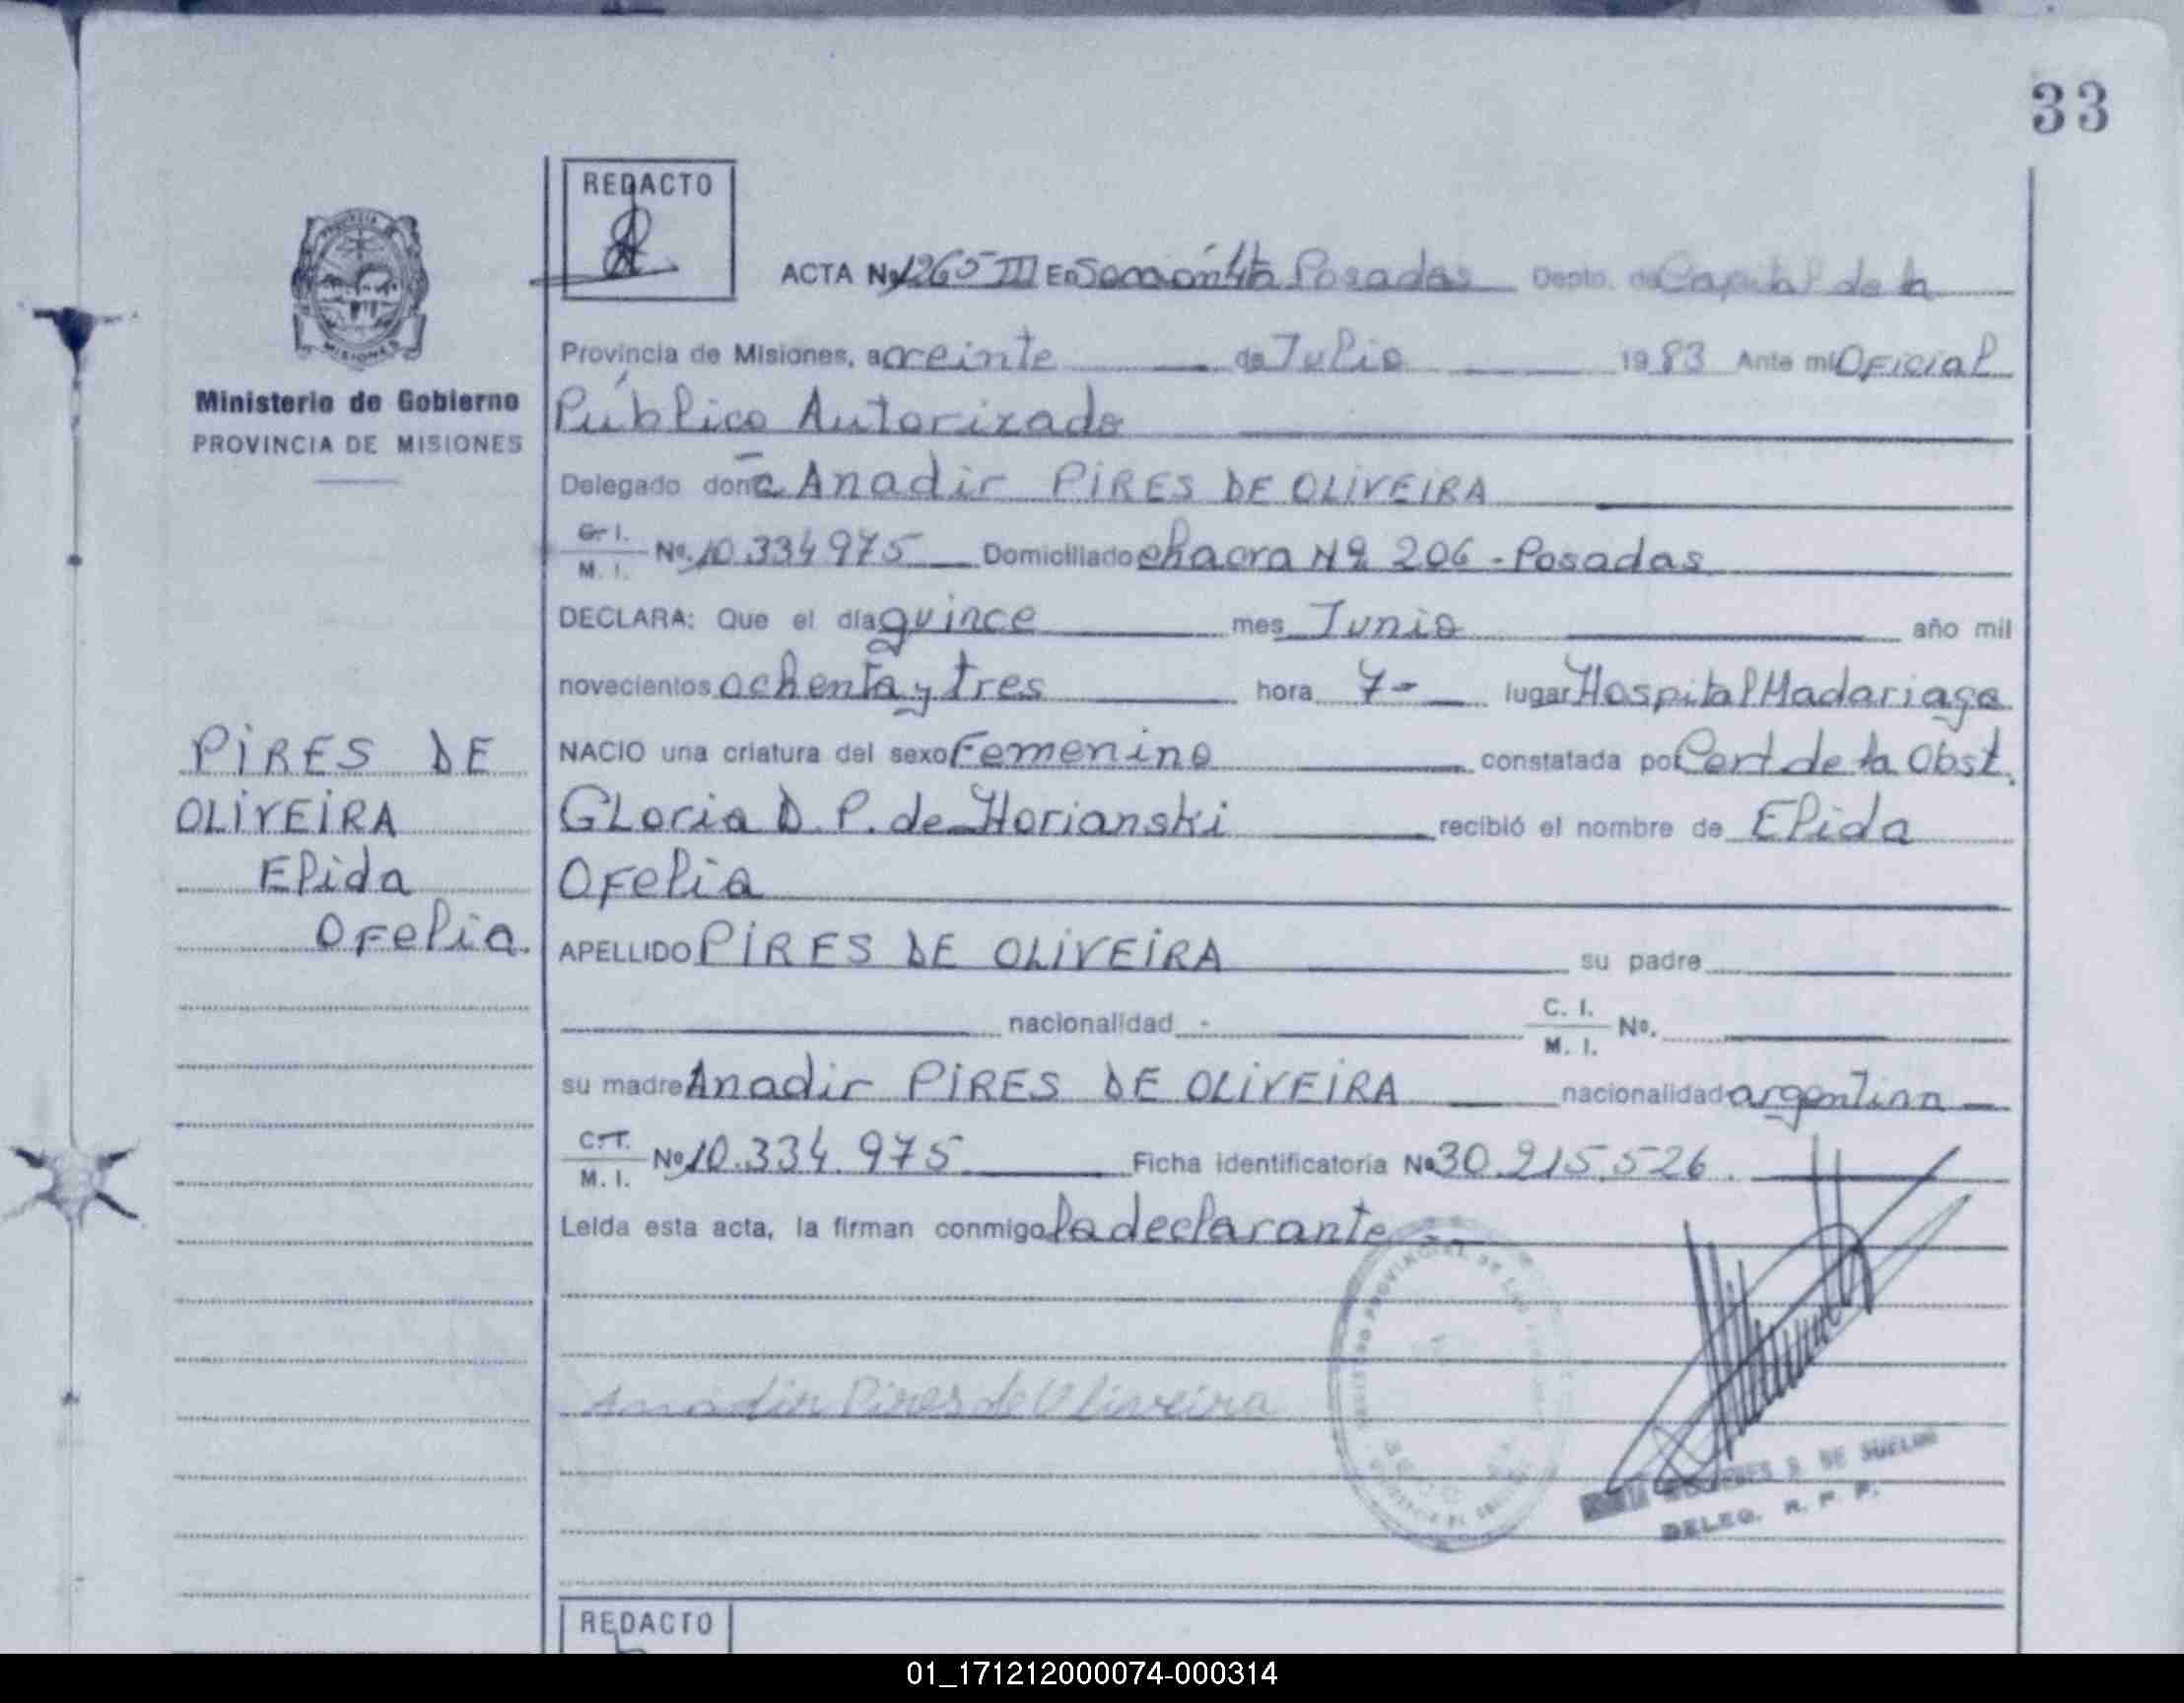 33
REDACTO
ACTA Nº 1265 III En Sección 4ta Posadas Depto. de Capital de la
Provincia de Misiones, a treinte de Julio 1983 Ante mi Oficial
Público Autorizado
Ministerio de Gobierno
PROVINCIA DE MISIONES
MISIONES
Delegado doña Anadir PIRES DE OLIVEIRA
C. I. M. I. Nº. 10.334975 Domiciliado chacra Nº 206 - Posadas
DECLARA: Que el día quince mes Junio año mil
novecientos ochenta y tres hora 7- lugar Hospital Madariaga
NACIO una criatura del sexo Femenino constatada por Cert de la Obst.
Gloria D. P. de Horianski recibió el nombre de Elida
Ofelia
PIRES DE
OLIVEIRA
Elida
Ofelia.
APELLIDO PIRES DE OLIVEIRA su padre
nacionalidad - C. I. M. I. Nº.
su madre Anadir PIRES DE OLIVEIRA nacionalidad argentina
C. I. M. I. Nº 10.334.975 Ficha identificatoria Nº 30.215.526.
Leida esta acta, la firman conmigo la declarante
Anadir Pires de Oliveira
DE SUELDO
DELEG. R. P. P.
REDACTO
01_171212000074-000314